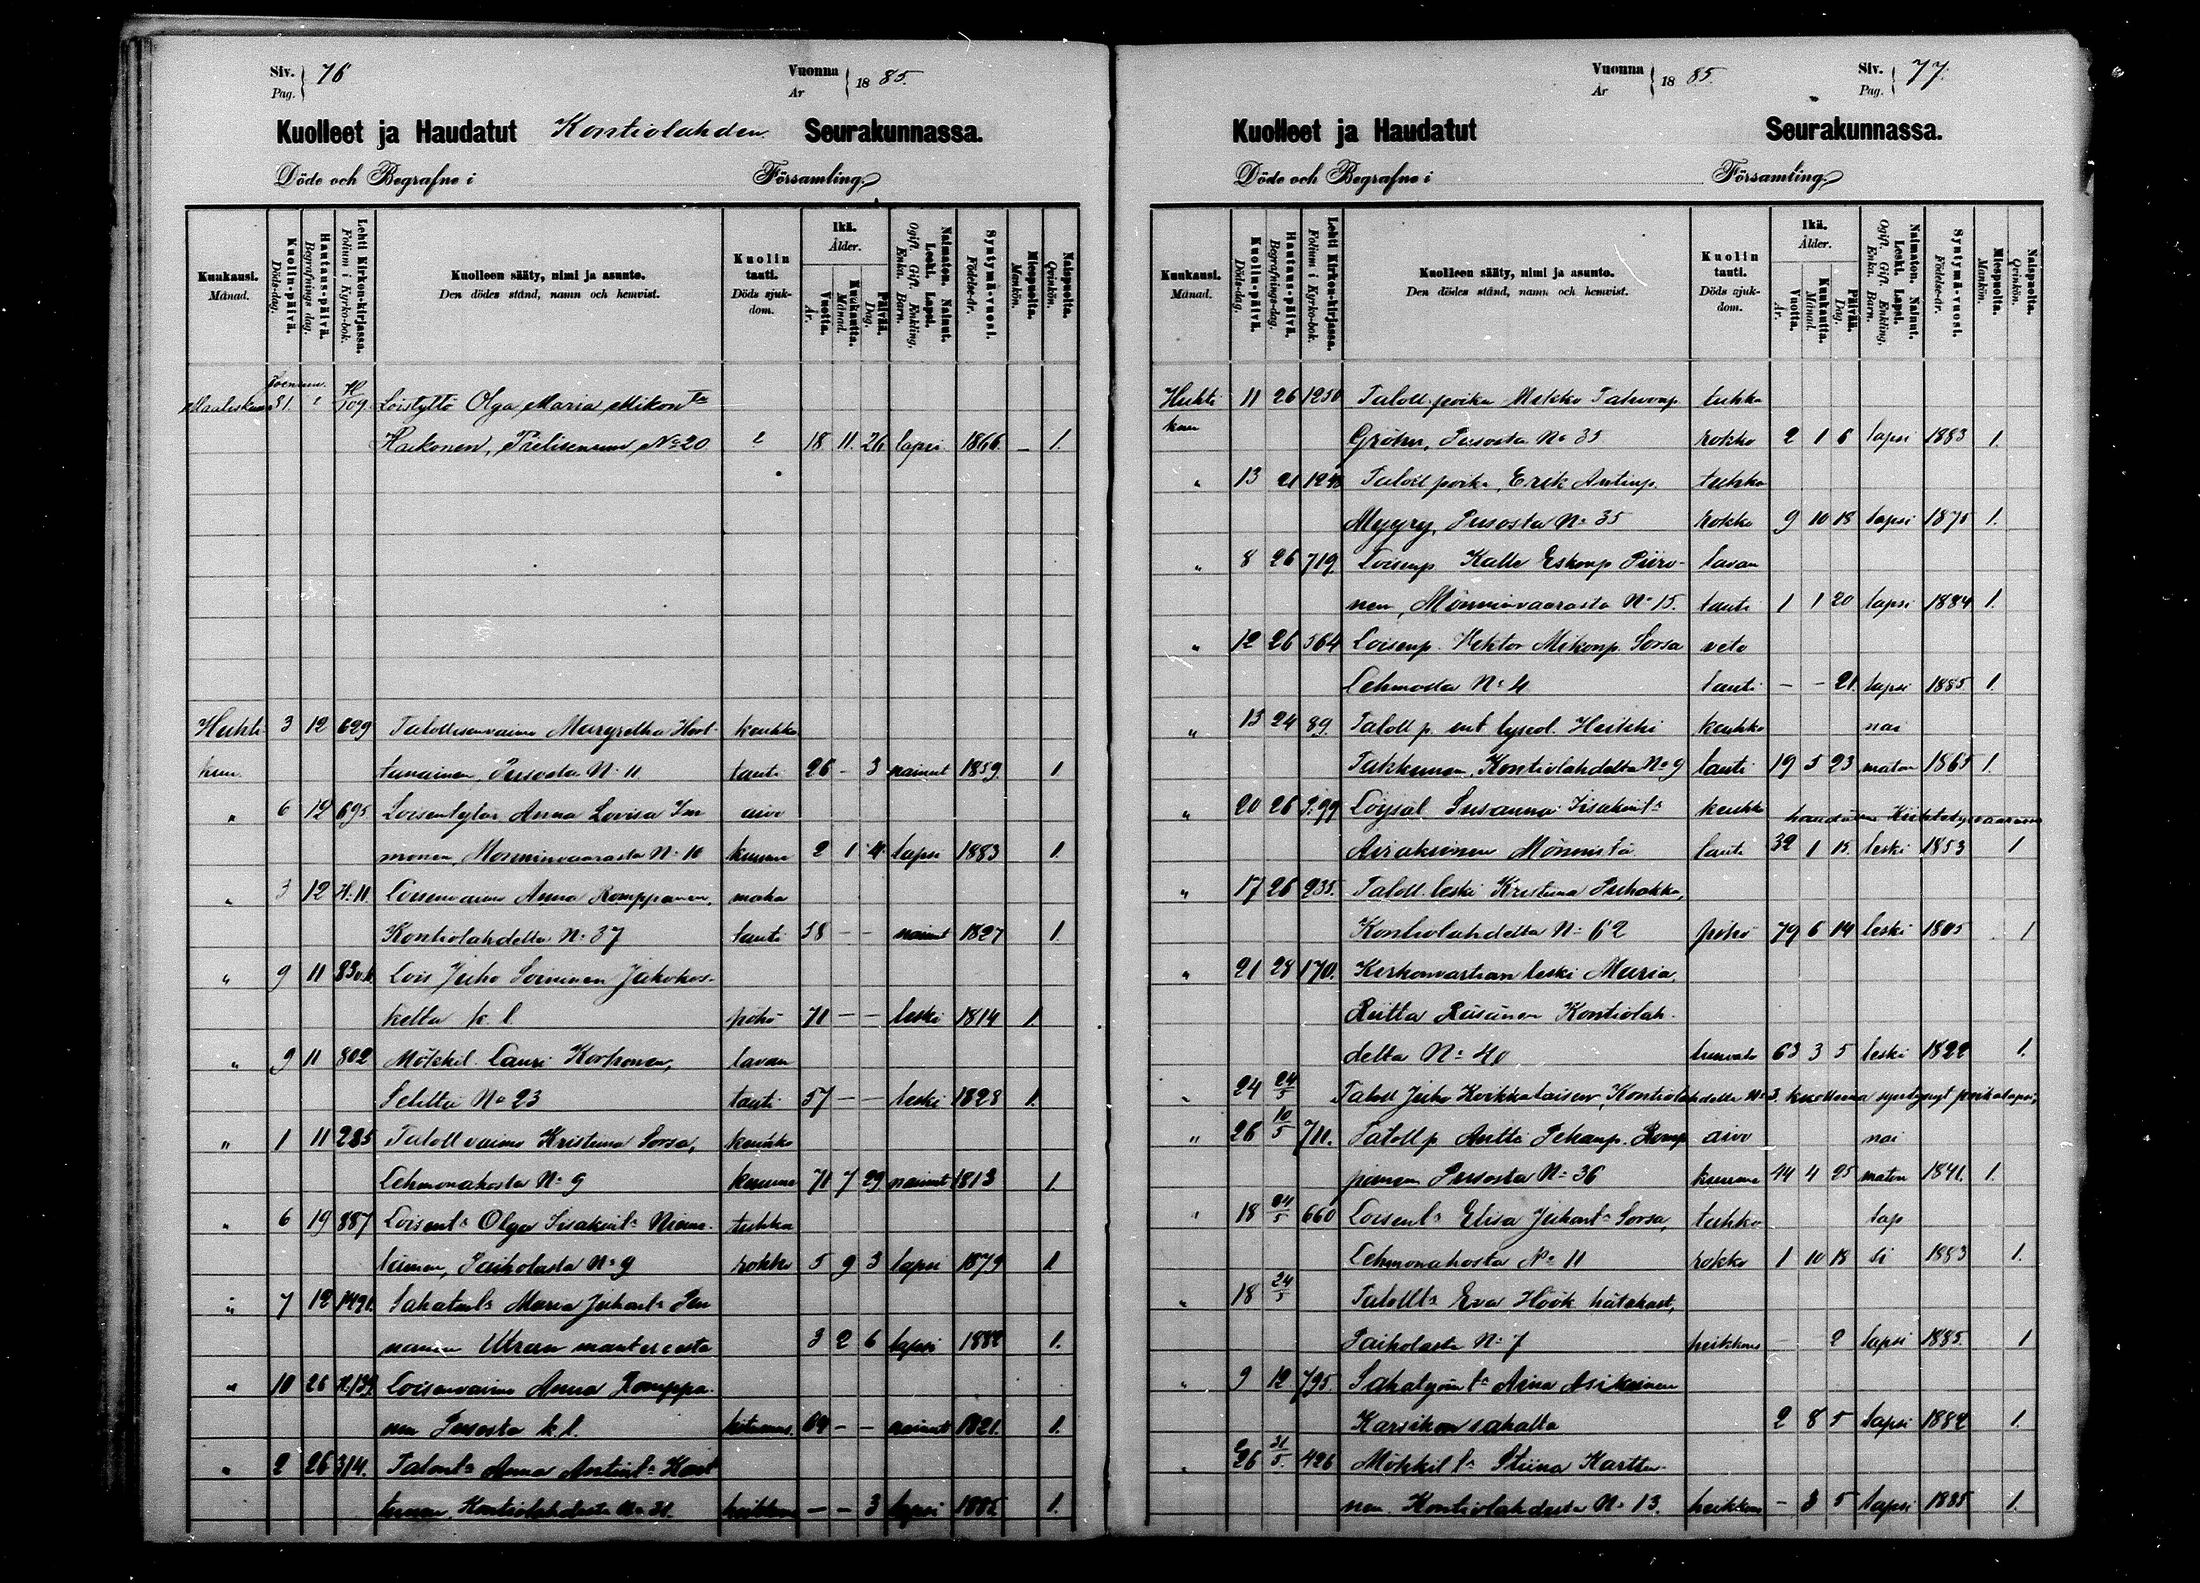 Siv. 76
Pag.
Vuonna 1885.
Ar
Kuolleet ja Haudatut Kontiolahden Seurakunnassa.
Döde och Begrafne i Församling.
Kuukausi. Månad.
Kuolin-päivä. Döds-dag.
Hautaus-päivä. Begrafnings dag.
Lehti Kirkon-kirjassa. Folium i Kyrko-bok.
Kuolleen sääty, nimi ja asunto. Den dödes stånd, namn och hemvist.
Kuolin tauti. Döds sjuk-dom.
Ikä. Ålder.
Vuotta. År.
Kuukautta. Månad.
Päivää. Dag.
Naimaton. Nainut. Leski. Lapsi. Ogift. Gift. Enkling, Enka. Barn.
Syntymä-vuosi. Födelse-år.
Miespuolta. Mankön.
Naispuolta. Qvinkön.
Maalisk 31. H 109. Loistyttö Olga Maria Mikont
Haikonen, Pielisensuu No 20 18 11 26 lapsi 1866 — 1.
Huhti 3 12 629 Talollisenvaimo Margretha Hort-
kuu. tanainen, Pusosta No 11 tauti 26 – 3 nainut 1859. 1
" 6 12 695 Loisentytär Anna Lovisa Im aivo
monen, Mönninvaarasta No 10 kuume 2 1 lapsi 1883 1.
" 3 12 H. 11 Loisenvaimo Anna Romppanen, maha
Kontiolahdelta No 37 tauti 58 – – nainut 1827 1.
" 9 11 Lois Juho Sorminen Jakokos-
kelta k. l. pöhö 71 – – leski 1814 1.
" 9 11 802 Mökkil. Lauri Korhonen, lavan
Selkltä No 23 tauti 57 – – leski 1828 1.
" 1 11 285 Taloll vaimo Kristina Sorsa, keuhko
Lehmonahosta No 9 kuume 71 7 29 nainut 1813 1.
" 6 19 887 Loisent. Olga Iisakint. Niema- tuhka
Paiholasta No 9 rokko 5 9 3 lapsi 1879 1
" 7 12 1491 Maria Juhont. Pen
nanen Utran 3 2 6 lapsi 1882 1.
" 10 26 H. 139 Loisenvaimo Anna Romppa-
nen Pusosta k. l. 64 – – nainut 1821. 1.
" 2 26 314. Talont. Anna Antint. Hort
tanen, Kontiolahdesta No 31. heikkous – – 3 lapsi 1885 1.
Vuonna 1885.
Ar
Siv. 77.
Pag.
Kuolleet ja Haudatut Seurakunnassa.
Döde och Begrafne i Församling.
Kuukausi. Månad.
Kuolin-päivä. Döds-dag.
Hautaus-päivä. Begrafnings-dag.
Lehti Kirkon-kirjassa. Folium i Kyrko-bok.
Kuolleen sääty, nimi ja asunto. Den dödes stånd, namn och hemvist.
Kuolin tauti. Döds sjuk-dom.
Ikä. Ålder.
Vuotta. År.
Kuukautta. Månad.
Päivää. Dag.
Naimaton. Nainut. Leski. Lapsi. Ogift. Gift. Enkling, Enka. Barn.
Syntymä-vuosi. Födelse-år.
Miespuolta. Mankön.
Naispuolta. Qvinkön.
Huhti 11 26 1250 Taloll. poika Mikko tuhka
kuu Gröhn, Pusosta No 35 rokko 2 1 6 lapsi 1883 1.
" 13 21 Taloll poika, Erik Antinp. tuhka
Myyry, Pusosta No 35 rokko 9 10 18 lapsi 1875 1.
" 8 26 719. Loisenp Kalle Eskonp Piiro- lavan
nen, Mönninvaarasta No 15. tauti 1 1 20 lapsi 1884 1.
" 12 26 564 Loisenp. Hektor Mikonp. Sorsa veto
Lehmosta No 4 tauti – – 21. lapsi 1885 1.
" 13 24 89. Taloll p. ent lyseol. Heikki keuhko nai
Takkunen, Kontiolahdelta No 9 tauti 19 5 23 maton 1865 1.
" 20 26 Susanna Iisakint. keuhko haudattu
Airaksinen Mönnistä tauti 32 1 15. leski 1853 1
" 17 26 235. Taloll. leski Kristiina Puhakka,
Kontiolahdelta No 62 pöhö 79 6 14 leski 1805 1
" 21 28 170. Kirkonvartian leski Maria
Riitta Räsänen Kontiolah-
delta No 40 63 3 5 leski 1822 1.
" 24 24/5 Taloll Juho Kerkkälaisen, Kontiolahdelta No 3, kuollena syntynyt poikalapsi,
" 26 10/5 711. Taloll p Antti Pekanp. Romp aivo nai
panen Pusosta No 36 kuume 44 4 25 maton 1841. 1.
" 18 24/5 660 Loisent. Elisa Juhont. Sorsa, tuhko lap
Lehmonahosta No 11 rokko 1 10 18 si 1883 1.
" 18 24/5 Talollt. Eva Höök hätäkast,
Paiholasta No 7 heikkous – 2 lapsi 1885. 1
" 9 12 795. Sahatyöm t. Aina Asikainen
Karsikon sahalta 2 8 5 lapsi 1882 1.
" 26 31/5. 426 Mökkil t. Stiina Kartta-
nen. Kontiolahdesta No 13. heikkous – 3 5 lapsi 1885 1.